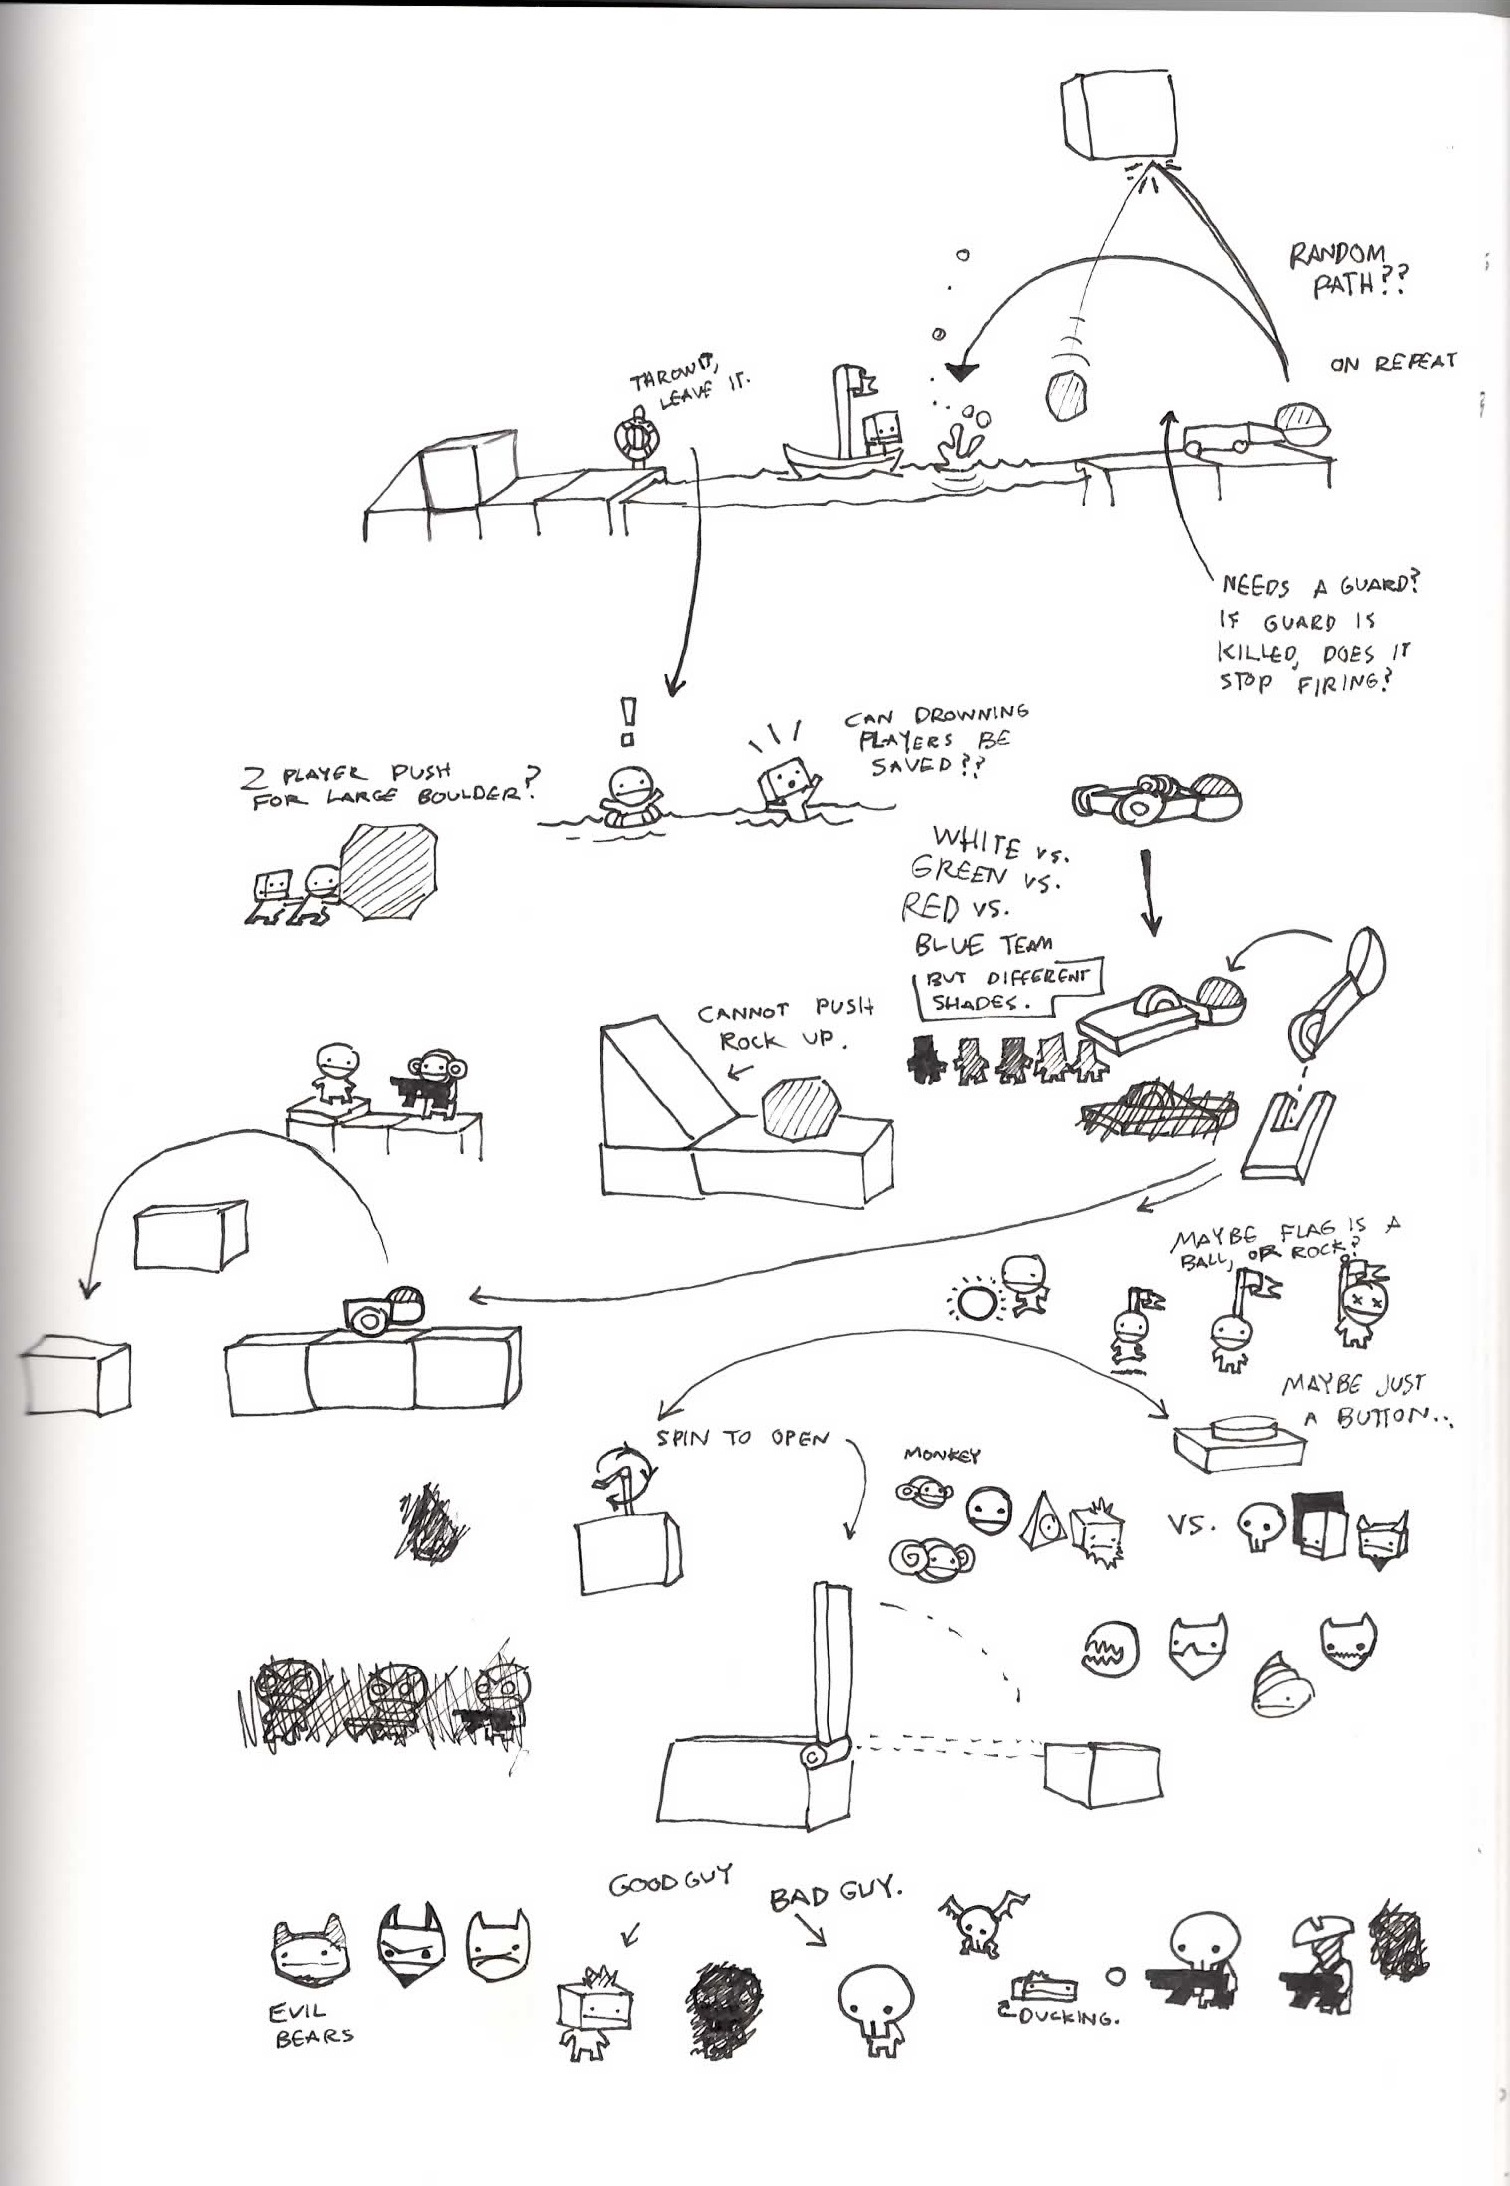 RANDOM
PATH??
ON REPEAT
THROW IT,
LEAVE IT.
NEEDS A GUARD?
IF GUARD IS
KILLED, DOES IT
STOP FIRING?
!
CAN DROWNING
PLAYERS BE
SAVED??
2 PLAYER PUSH
FOR LARGE BOULDER?
WHITE vs.
GREEN vs.
RED vs.
BLUE TEAM
BUT DIFFERENT
SHADES.
CANNOT PUSH
ROCK UP.
MAYBE FLAG IS A
BALL, OR ROCK?
MAYBE JUST
A BUTTON...
SPIN TO OPEN
MONKEY
VS.
GOOD GUY
BAD GUY.
EVIL
BEARS
DUCKING.